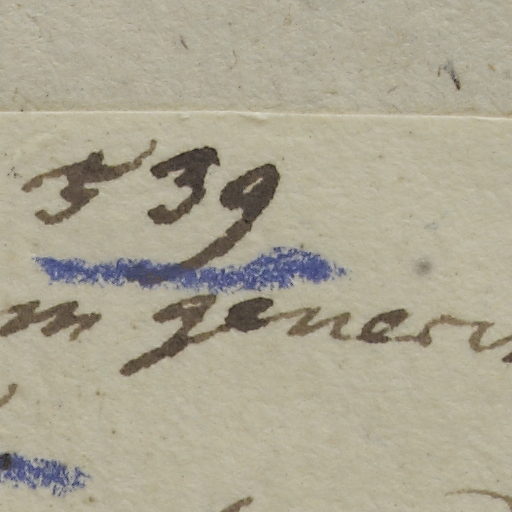 539
m generi